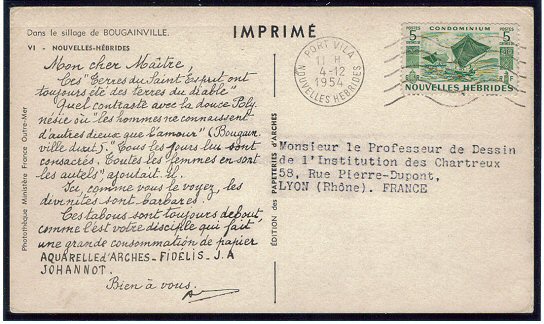 Dans le sillage de BOUGAINVILLE.
VI - NOUVELLES-HÉBRIDES
IMPRIMÉ
Mon cher Maître,
Ces "Terres du Saint Esprit ont
toujours été des terres du diable"
Quel contraste avec la douce Poly
nésie où "les hommes ne connaissent
d'autres dieux que l'amour" (Bougain.
ville dixt). "Tous les jours lui sont
consacrés. Toutes les femmes en sont
les autels", ajoutait-il.
Ici, comme vous le voyez, les
divinités sont barbares.
Ces tabous sont toujours debout,
comme l'est votre disciple qui fait
une grande consommation de papier
AQUARELLE d'ARCHES - FIDELIS - J.A
JOHANNOT.
Bien à vous.
Photothèque Ministère France Outre-Mer
ÉDITION des PAPETERIES d'ARCHES
PORT VILA
11 H
4-12
1954
NOUVELLES HEBRIDES
POSTES
CONDOMINIUM
POSTES
5
5
CENTIMES
CENTIMES
RF
NOUVELLES HÉBRIDES
Monsieur le Professeur de Dessin
de l'Institution des Chartreux
58, Rue Pierre-Dupont,
LYON (Rhône). FRANCE